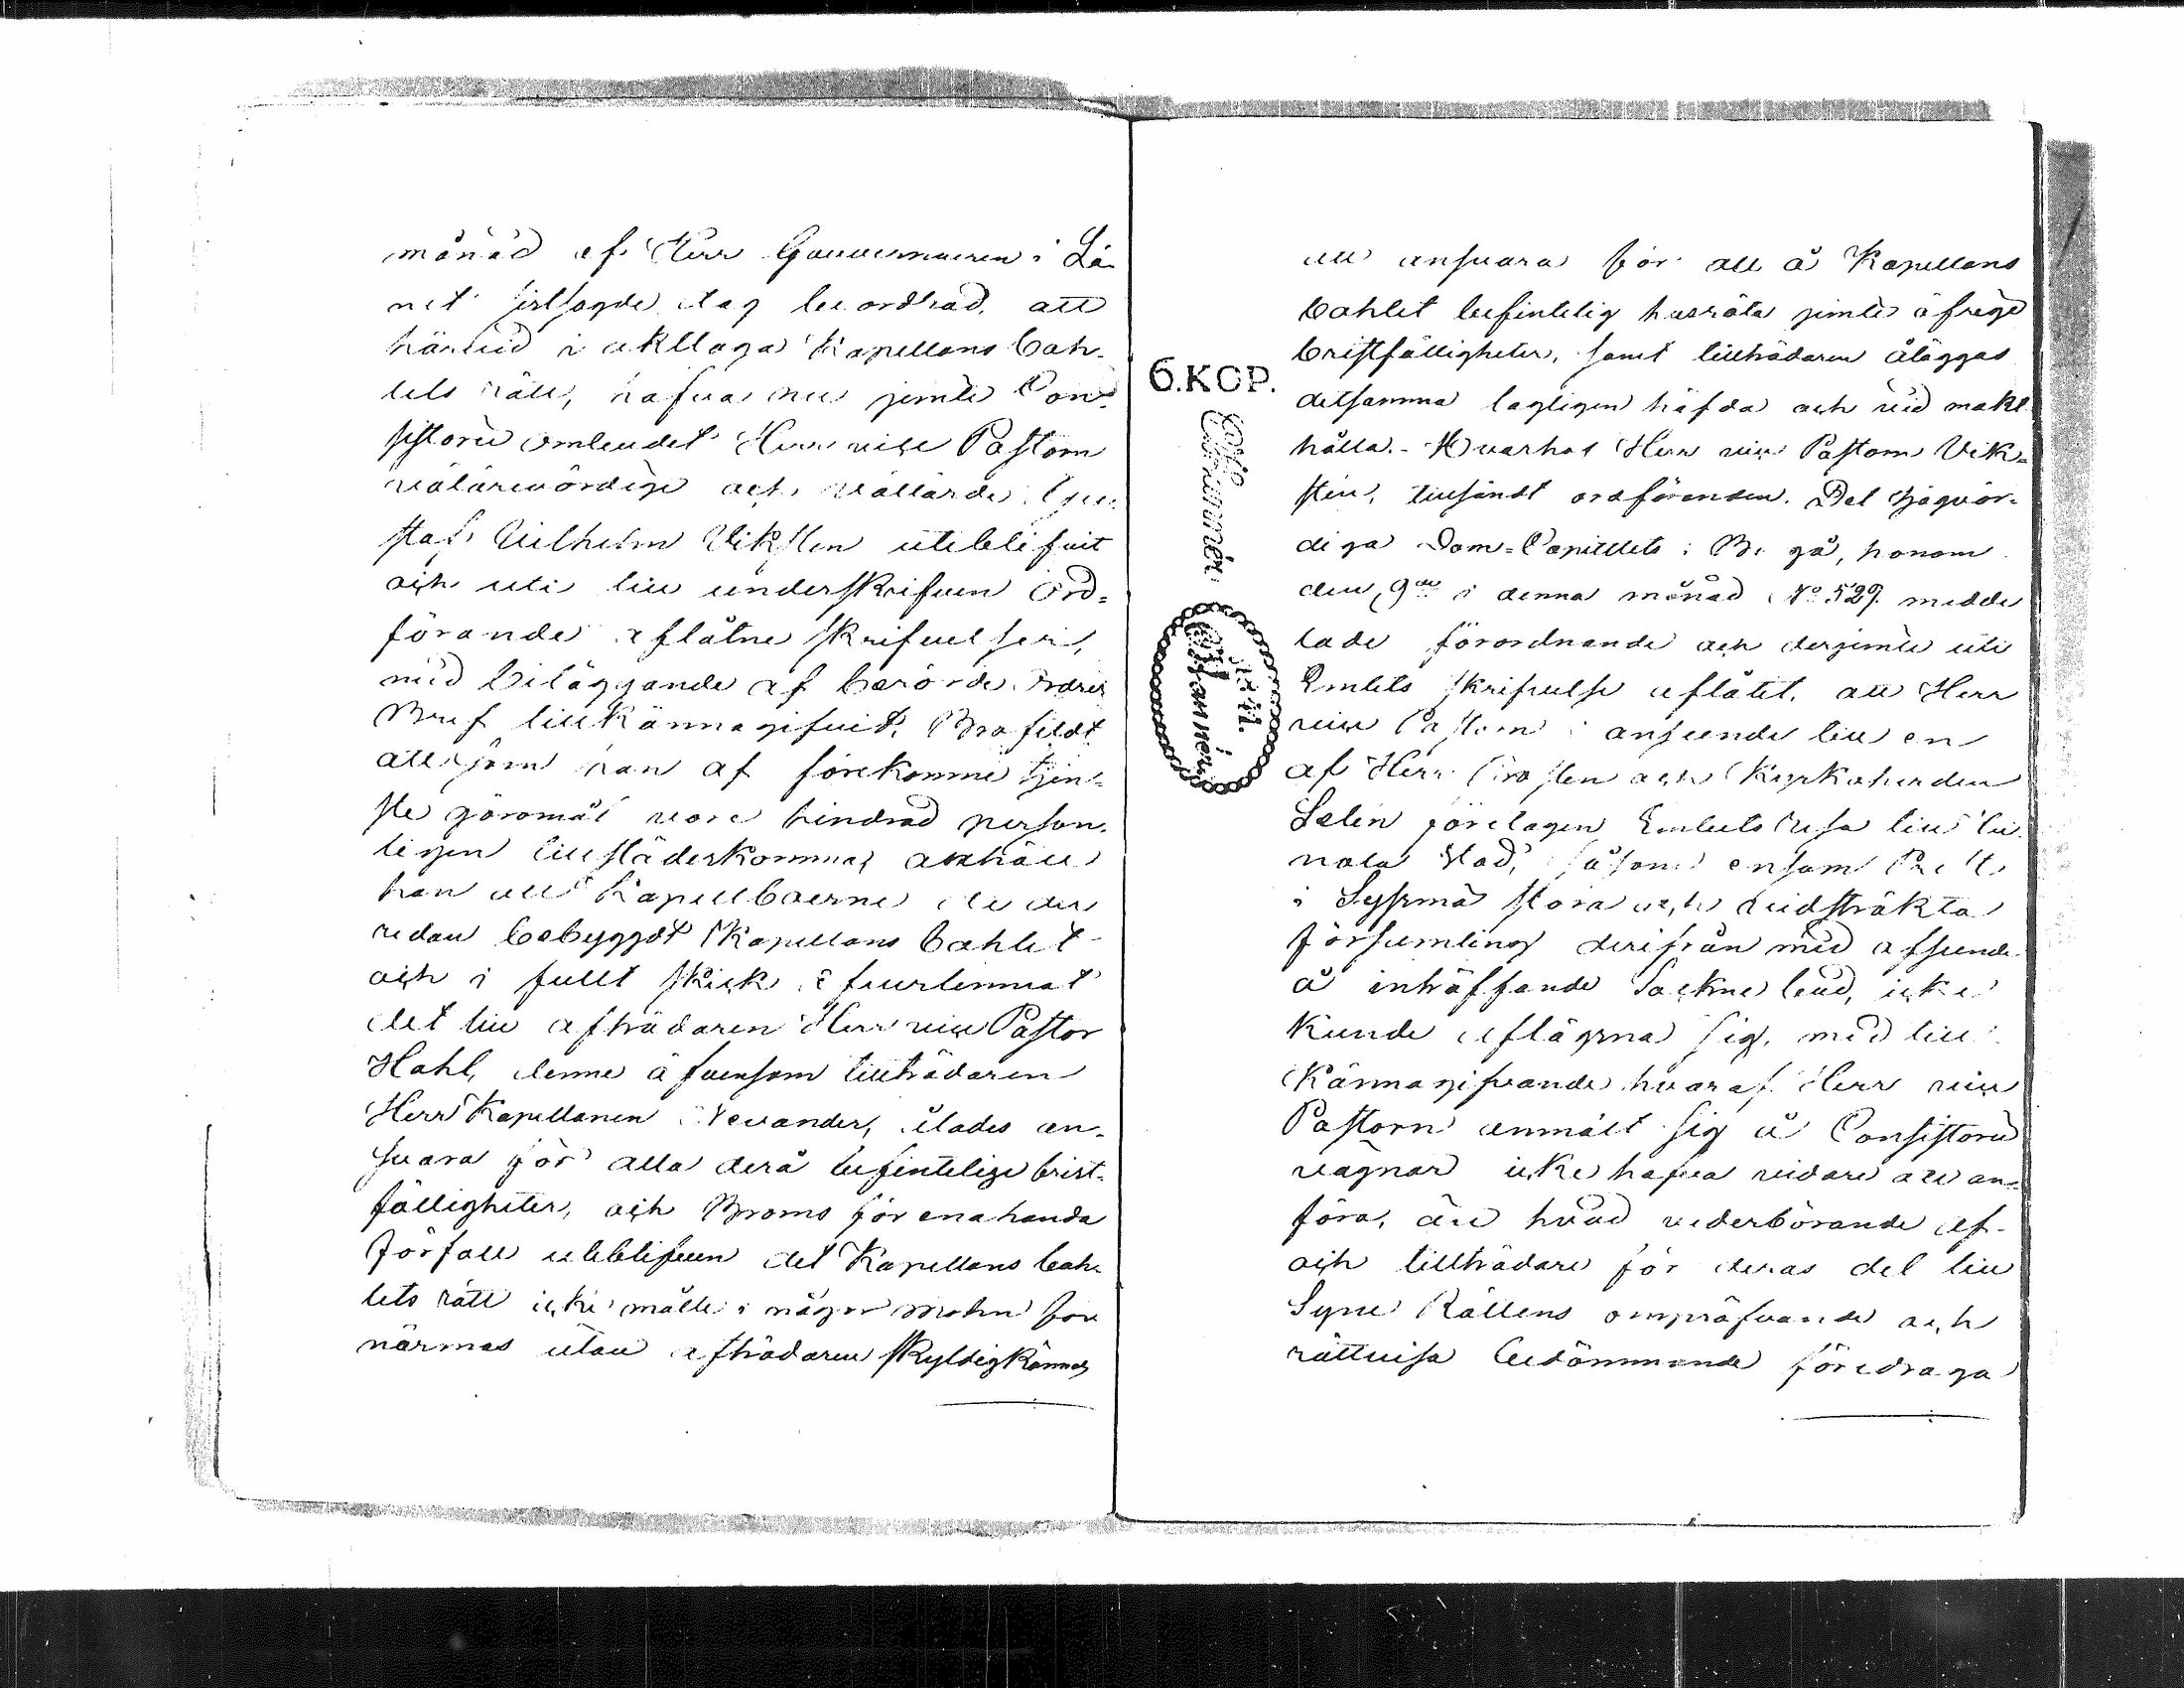 månad af Herr Gouverneuren i Lä-
net sistsagde dag beordrad, att
härvid i akttaga Kapellans bah-
lets rätt, hafva nu jemte Con-
sistorii ombudet Herr vice Pastorn
välärevördige och vällärde Gu-
staf Vilhelm Viksten uteblifvit
och uti till underskrifven Ord-
förande aflåtne skrifvelser,
med biläggande af berörde Ordres
Bref tillkännagifvit, Brofeldt
att som han af förekomne tjen-
ste göromål vore hindrad person-
ligen tillstädeskomma, anhåll
han att Kapellboerne de der
redan bebyggdt Kapellans bahlet
och i fullt skick öfverlemnat
det till afträdaren Herr vice Pastor
Hahl, denne äfvensom tillträdaren
Herr Kapellanen Nevander, ålades an-
svara för alla derå befintelige brist-
fälligheter, och Broms för enahanda
förfall utebliften det Kapellans bah-
lets rätt icke måtte i någor mohn för
närmas utan afträdaren skyldigkännas
att ansvara för all å Kapellans
bahlet befintelig husröta jemte öfrige
bristfälligheter, samt tillträdaren åläggas
detsamma lagligen häfda och vid makt
hålla. - Hvarhos Herr vice Pastorn Vik-
sten, tillsändt ordföranden. Det Högvör-
diga Dom-Capitlets i Borgå, honom
den 9de i denna månad No 529. medde
lade förordnande och derjemte uti
Embets skrifvelse aflåtit, att Herr
vice Pastorn i anseende till en
af Herr Prosten och Kyrkoherden
Selin företagen Embets resa till
stad, såsom ensam Prest
i Sysmä stora och vidsträkta
församling derifrån med afseende
å inträffande Sockne bud, icke
kunde aflägsna sig, med till
Kännagifvande hvaraf Herr vice
Pastorn anmält sig å Consistorii
vägnar icke hafva vidare att an-
föra, än hvad vederbörande af-
och tillträdare för deras del till
Syne Rättens ompröfvande och
rättvisa bedömmande föredraga
6.KOP.